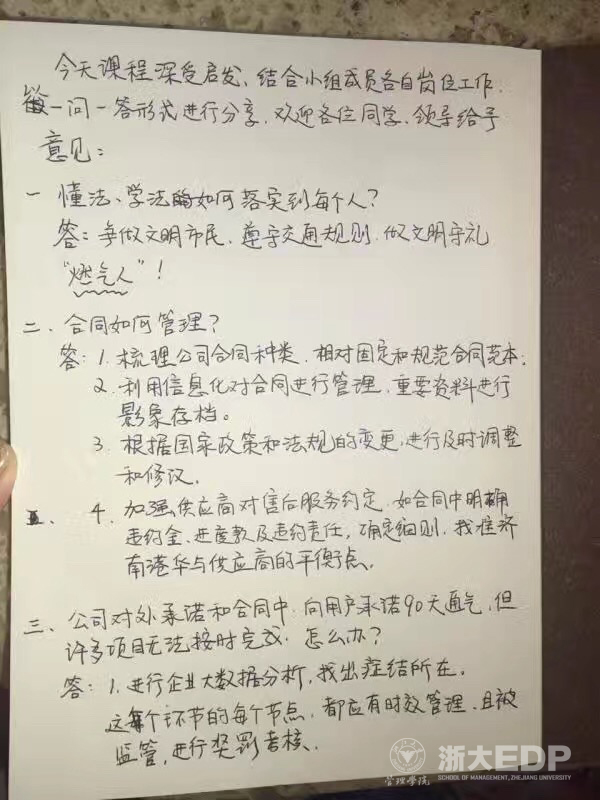 今天课程深受启发、结合小组成员各自岗位工作.
做一问一答形式进行分享,欢迎各位同学、领导给予
意见:
一 懂法、学法如何落实到每个人?
答:争做文明市民、遵守交通规则.做文明守礼
“燃气人”!
二、合同如何管理?
答:1.梳理公司合同种类.相对固定和规范合同范本;
2.利用信息化对合同进行管理.重要资料进行
影象存档。
3.根据国家政策和法规的变更,进行及时调整
和修议.
4.加强供应商对售后服务约定.如合同中明确
违约金、进度款及违约责任,确定细则.找准济
南港华与供应商的平衡点.
三、公司对外承诺和合同中.向用户承诺90天通气,但
许多项目无法按时完成.怎么办?
答:1.进行企业大数据分析,找出症结所在.
这每个环节的每个节点.都应有时效管理.且被
监管,进行奖罚考核.
管理学院
浙大EDP
SCHOOL OF MANAGEMENT, ZHEJIANG UNIVERSITY